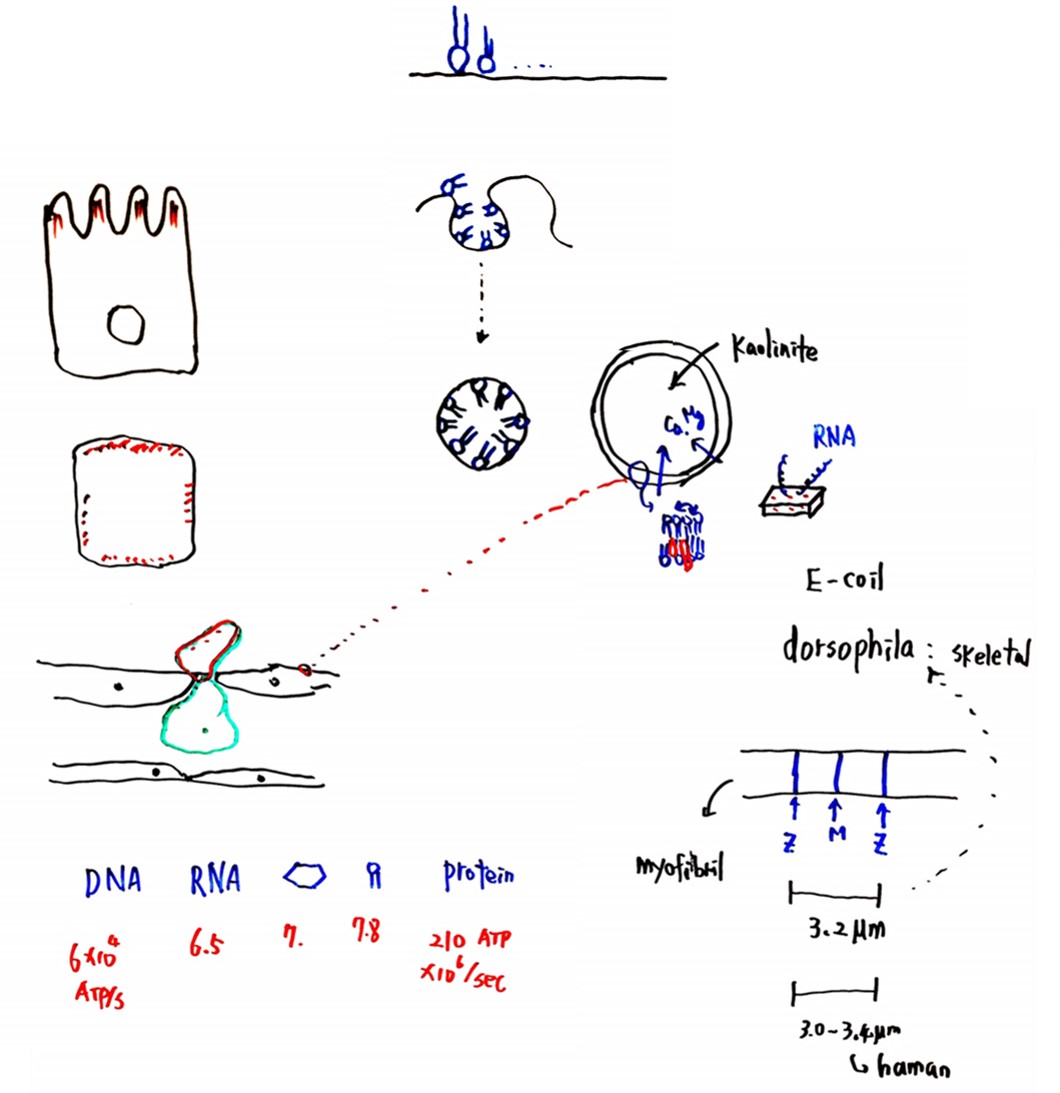 Kaolinite
Ca. Mg
RNA
E-coil
dorsophila : skeletal
Z M Z
myofibril
3.2 μm
3.0-3.4μm
haman
DNA RNA protein
6×10⁴ 6.5 7. 7.8 210 ATP
ATP/s ×10⁶/sec